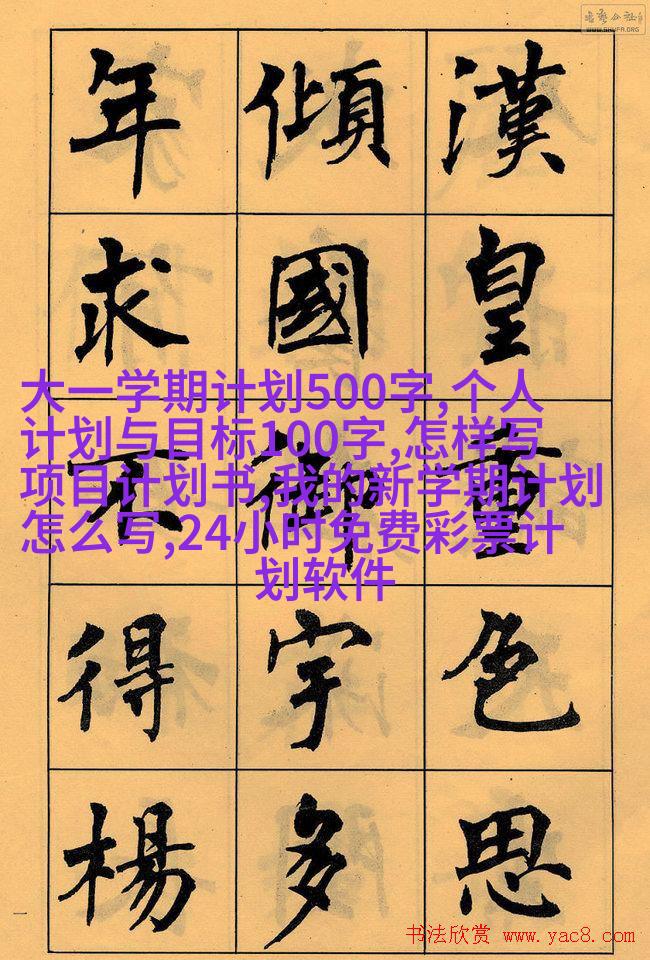 漢皇重色思
傾國御宇多
年求不得楊
大一学期计划500字,个人
计划与目标100字,怎样写
项目计划书,我的新学期计划
怎么写,24小时免费彩票计
划软件
一
书法欣赏 www.yac8.com
WWW.SHUFA.ORG